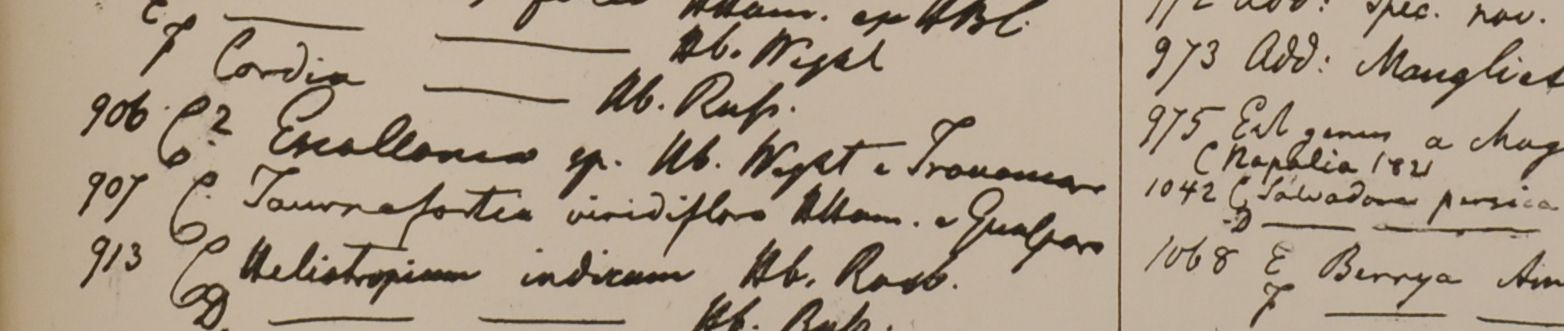 E ——— Hham. ex HBC.
F ——— Hb. Wight
Cordia ——— Hb. Russ.
906 C.2 Escallonia sp. Hb. Wight e
907 C. Tournefortia viridiflora Hham. e Gualpara
913 C Heliotropium indicum Hb. Roxb.
D. ——— ——— Hb. Russ.
972 Add: Spec. nov.
973 Add: Mangliet
975 Est genus a Mag
(Napalia 1821
1042 C Salvadora persica
D ——— ———
1068 E Berrya Am
F ——— ———